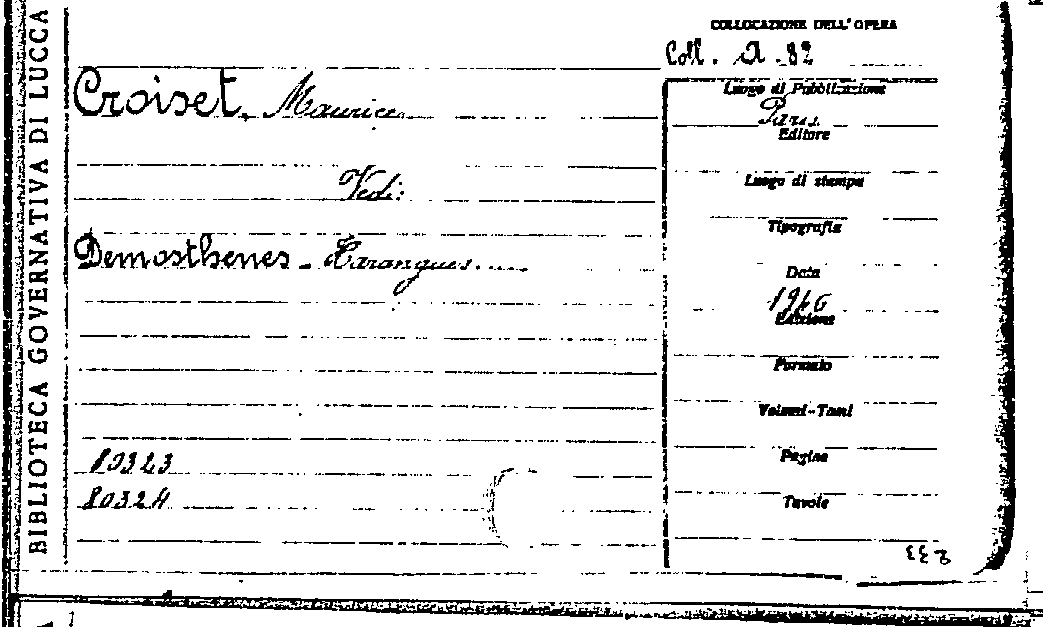 BIBLIOTECA GOVERNATIVA DI LUCCA
COLLOCAZIONE DELL'OPERA
Coll. A. 82
Croiset, Maurice
Vedi:
Demosthenes - Harangues.....
80323
80324
Luogo di Pubblicazione
Paris
Editore
Luogo di stampa
Tipografia
Data
Edizione
Formato
Volumi-Tomi
Pagine
Tavole